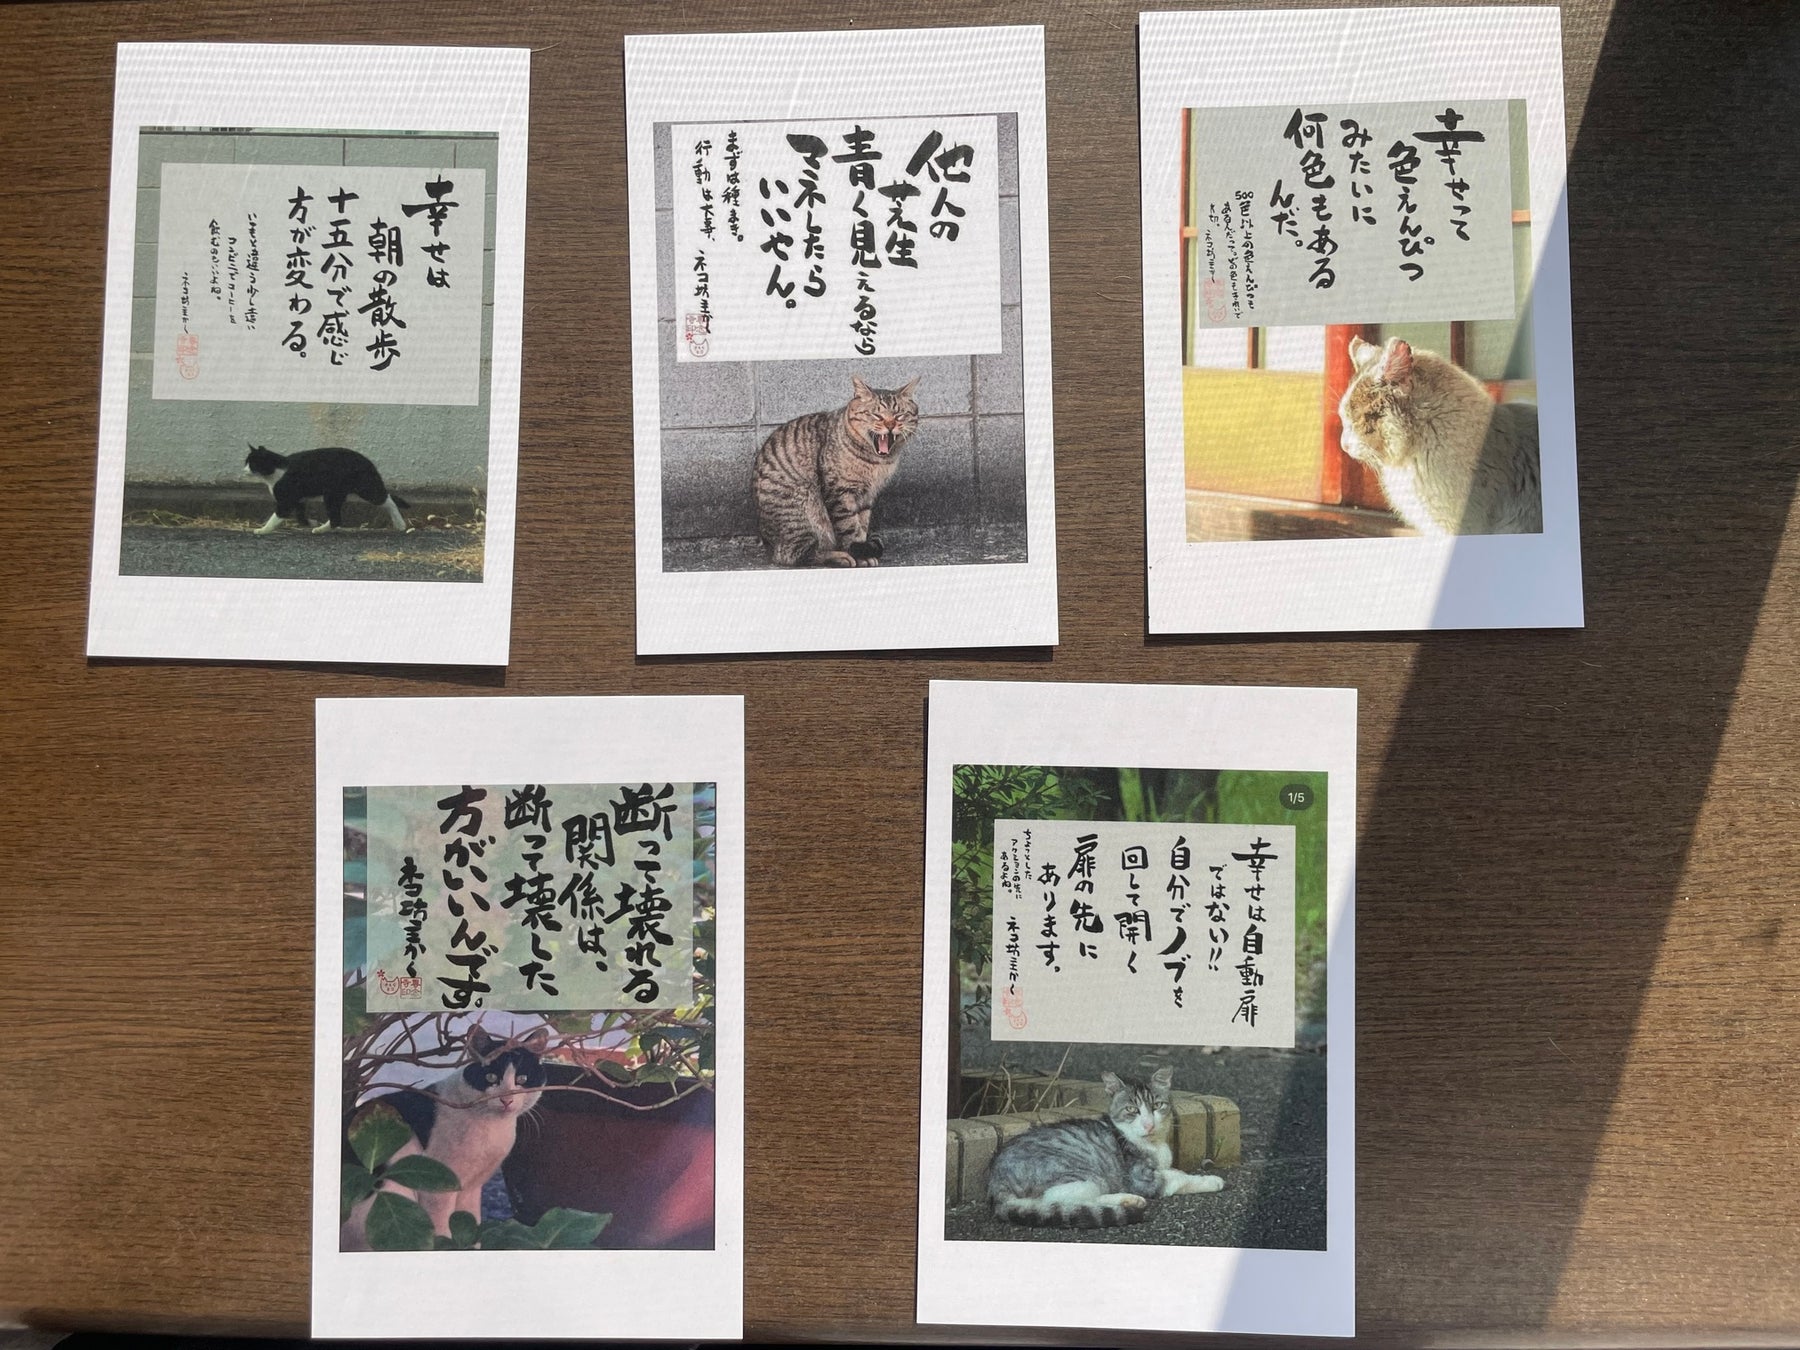 幸せは
朝の散歩
十五分で感じ
方が変わる。
いつもと違う少し遠い
コンビニでコーヒーを
飲むのもいいよね。
ネコ坊主かく
他人の
芝生
青く見えるなら
マネしたら
いいやん。
まずは種まき。
行動は大事、
ネコ坊主かく
幸せって
色えんぴつ
みたいに
何色もある
んだ。
500色以上の色えんぴつも
あるんだって。どの色もきれいで
大切。
ネコ坊主かく
断って壊れる
関係は、
断って壊した
方がいいんです。
ネコ坊主かく
1/5
幸せは自動扉
ではない!!
自分でノブを
回して開く
扉の先に
あります。
ちょっとした
アクションの先に
あるよね。
ネコ坊主かく